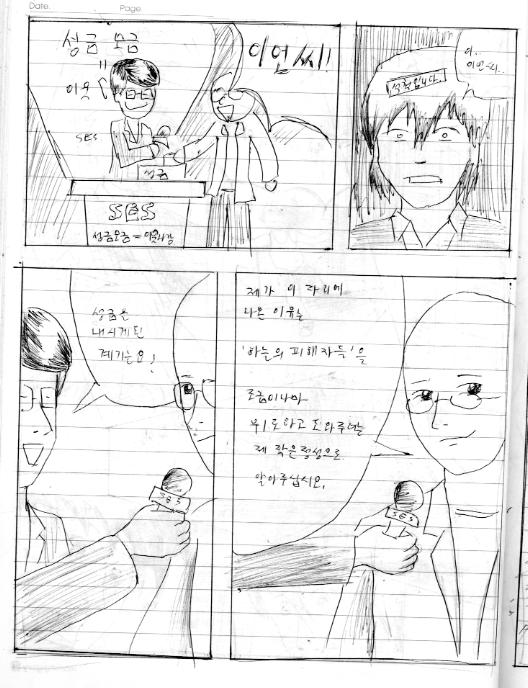 Date.
Page
성금 모금
이언씨!!
SBS
성금
SBS
성금모금 =
이..
이언씨..
성금입니다.
성금을
내시게된
계기는요?
SBS
제가 이 자리에
나온 이유는
'하늘의 피해자들'을
조금이나마
위로하고 도와주려는
제 작은정성으로
알아주십시오.
SBS